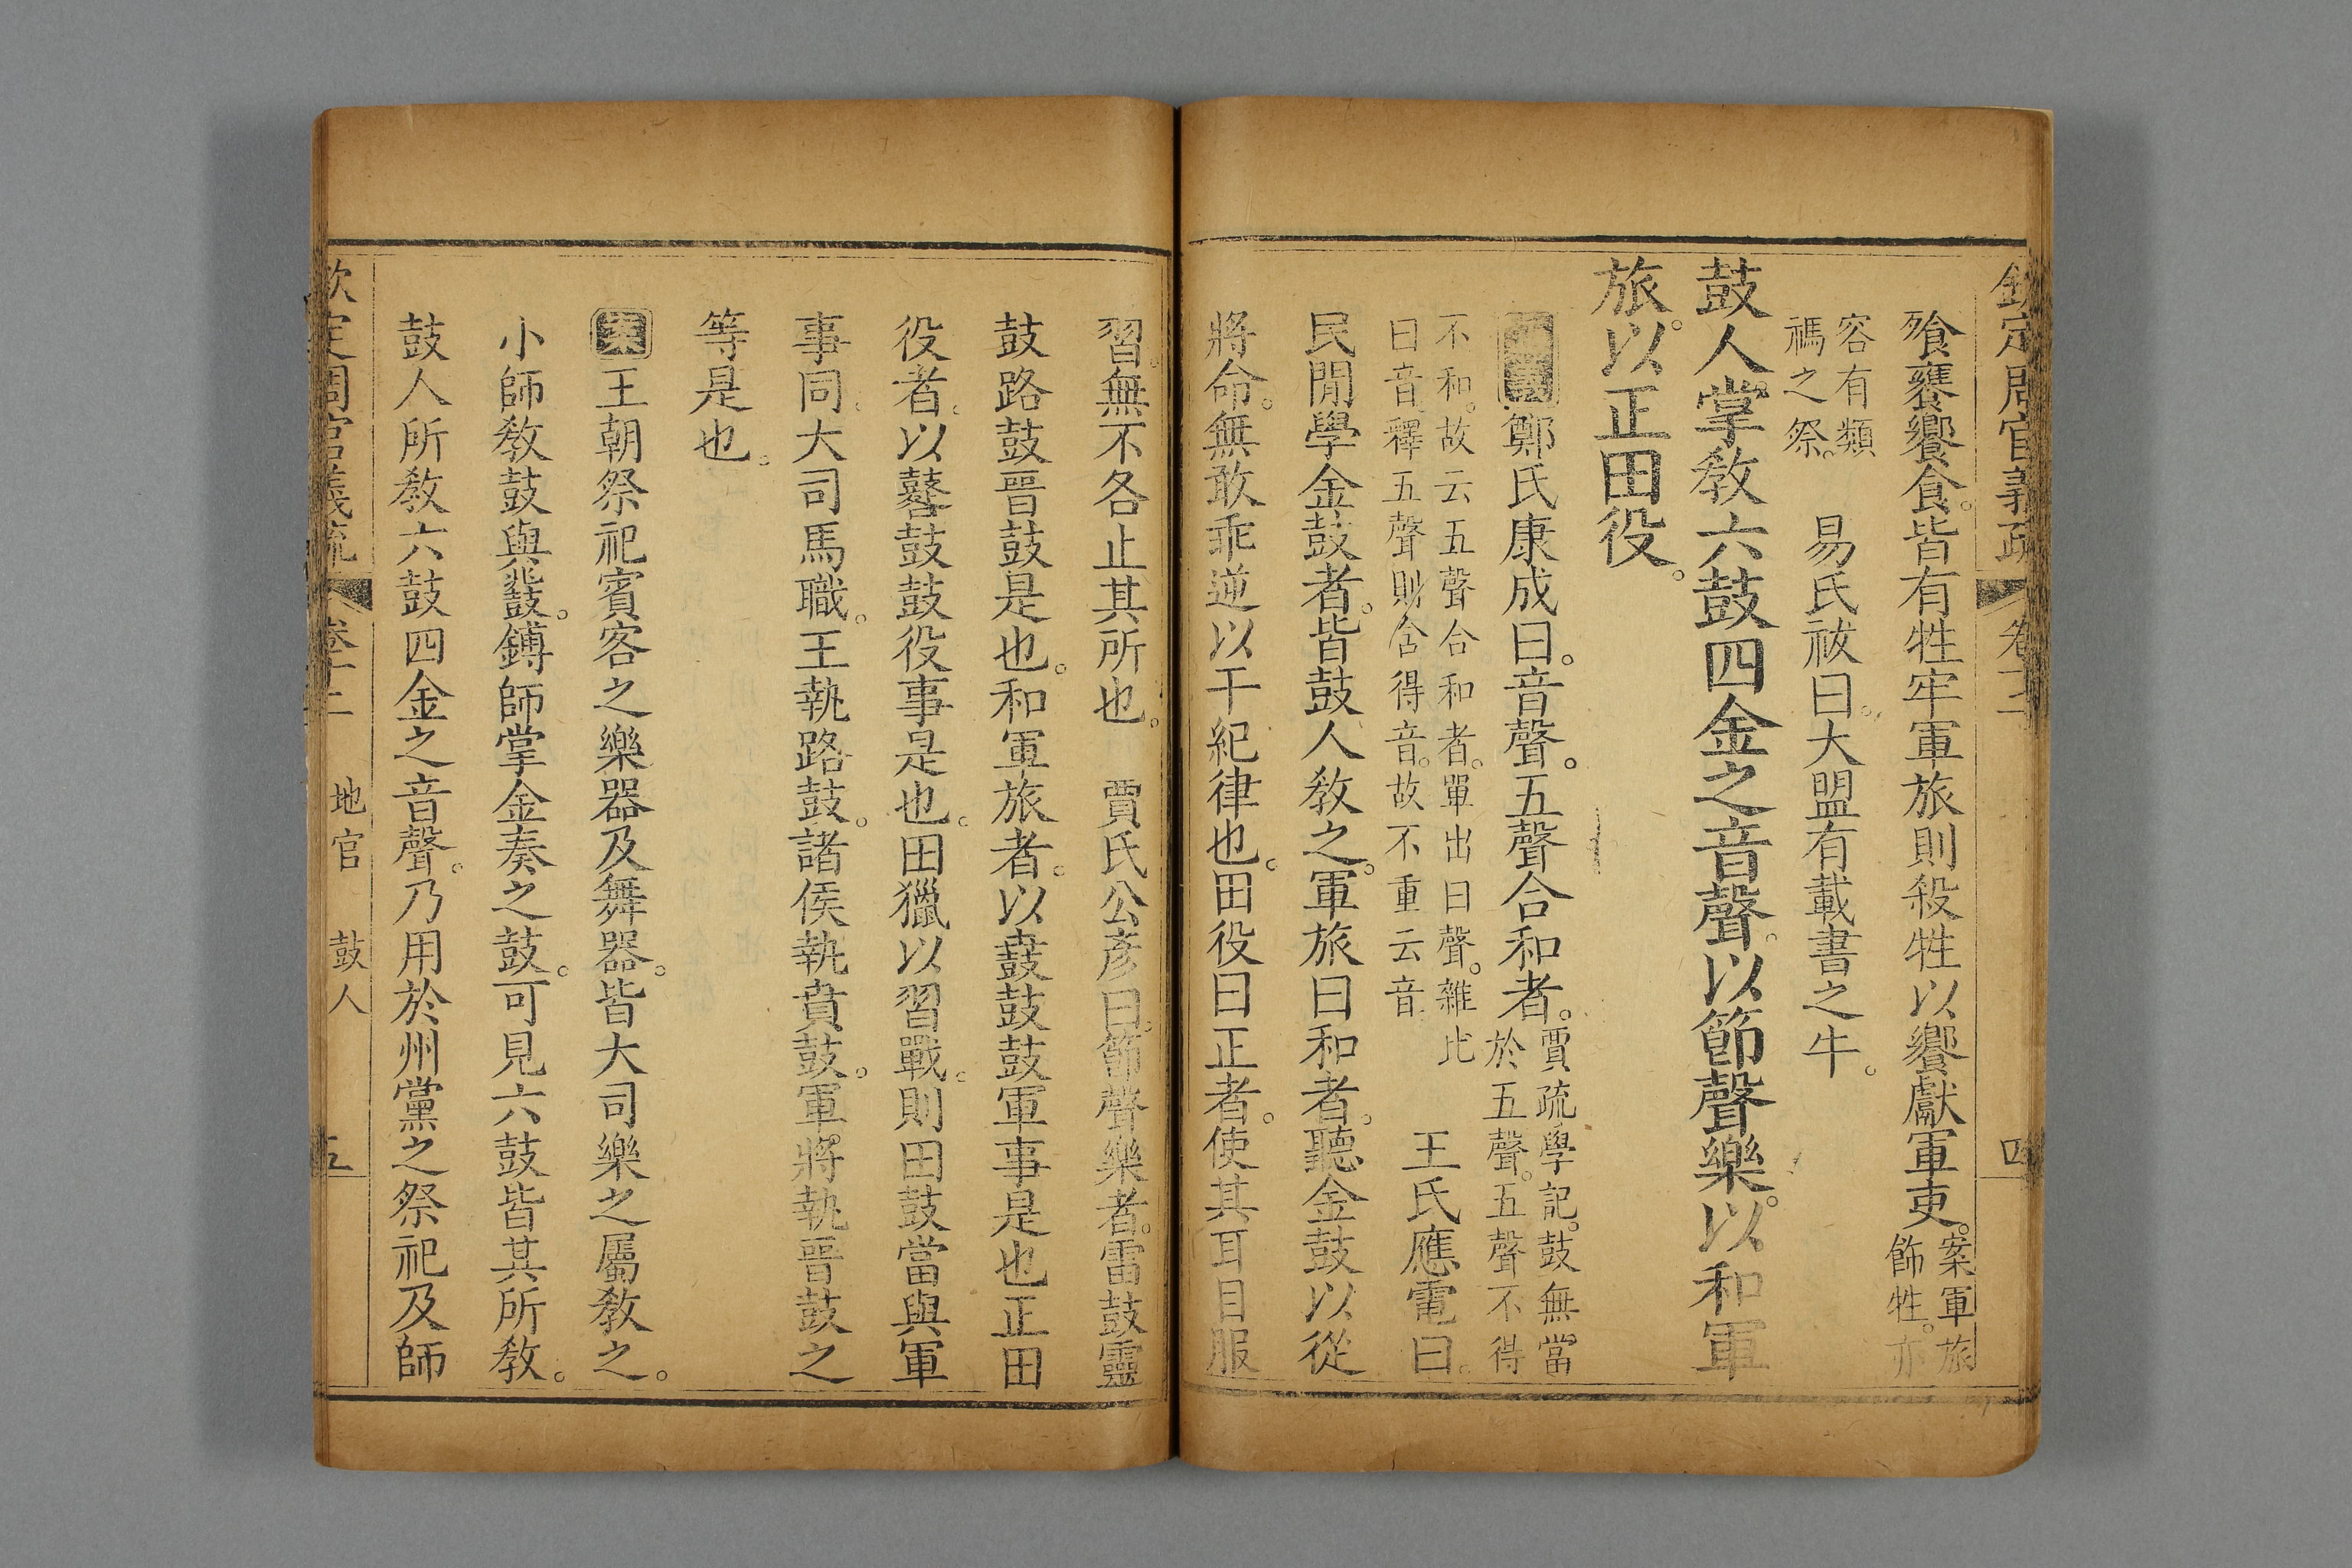 欽定周官義疏 卷十二 四
飱饔饗食。皆有牲牢軍旅則殺牲以饗獻軍吏。案軍旅
飾牲。亦
容有類
禡之祭。
易氏祓曰。大盟有載書之牛。
鼓人。掌敎六鼓四金之音聲。以節聲樂。以和軍
旅。以正田役。
鄭氏康成曰。音聲。五聲合和者。賈疏學記。鼓無當
於五聲。五聲不得
不和。故云五聲合和者。單出曰聲。雜比
曰音。釋五聲則含得音。故不重云音。
王氏應電曰。
民閒學金鼓者。皆鼓人敎之。軍旅曰和者。聽金鼓以從
將命。無敢乖逆以干紀律也。田役曰正者。使其耳目服
習。無不各止其所也。 賈氏公彥曰。節聲樂者。雷鼓靈
鼓路鼓晉鼓是也。和軍旅者。以鼖鼓鼓軍事是也正田
役者。以鼛鼓鼓役事是也。田獵以習戰。則田鼓當與軍
事同。大司馬職。王執路鼓。諸侯執賁鼓。軍將執晉鼓之
等是也。
案王朝祭祀賓客之樂器及舞器。皆大司樂之屬敎之。
小師敎鼓與鼗。鎛師掌金奏之鼓。可見六鼓皆其所敎。
鼓人所敎六鼓四金之音聲。乃用於州黨之祭祀及師
欽定周官義疏 卷十二 地官 鼓人 五